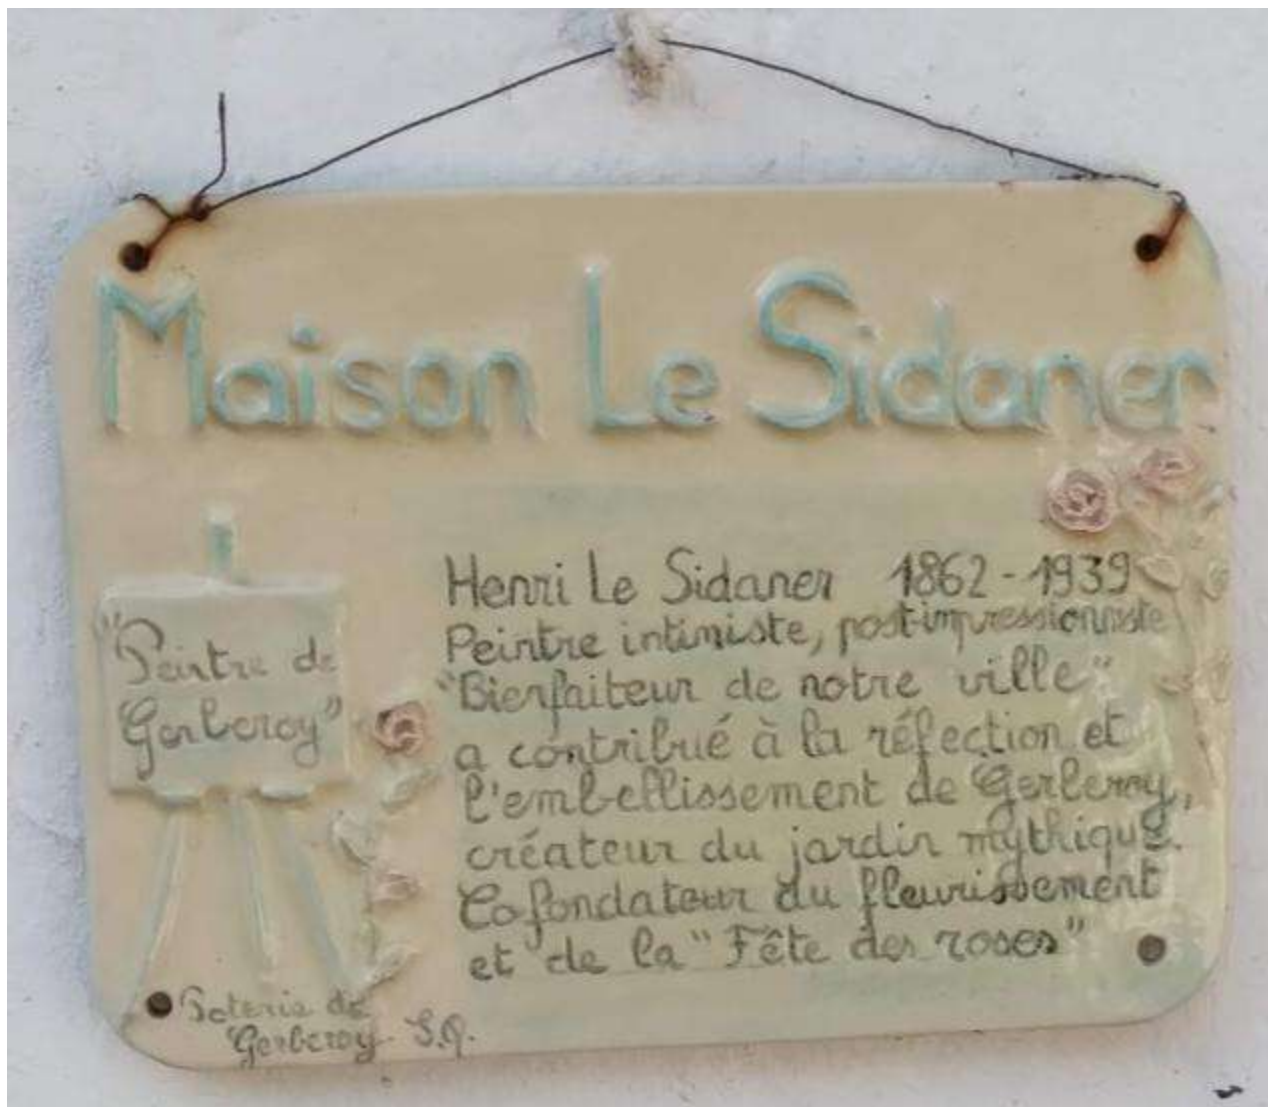 Maison Le Sidaner
"Peintre de
Gerberoy"
Henri Le Sidaner 1862-1939
Peintre intimiste, post-impressionniste
"Bienfaiteur de notre ville"
a contribué à la réfection et
l'embellissement de Gerberoy,
créateur du jardin mythique.
Cofondateur du fleurissement
et de la "Fête des roses"
Poterie de
Gerberoy